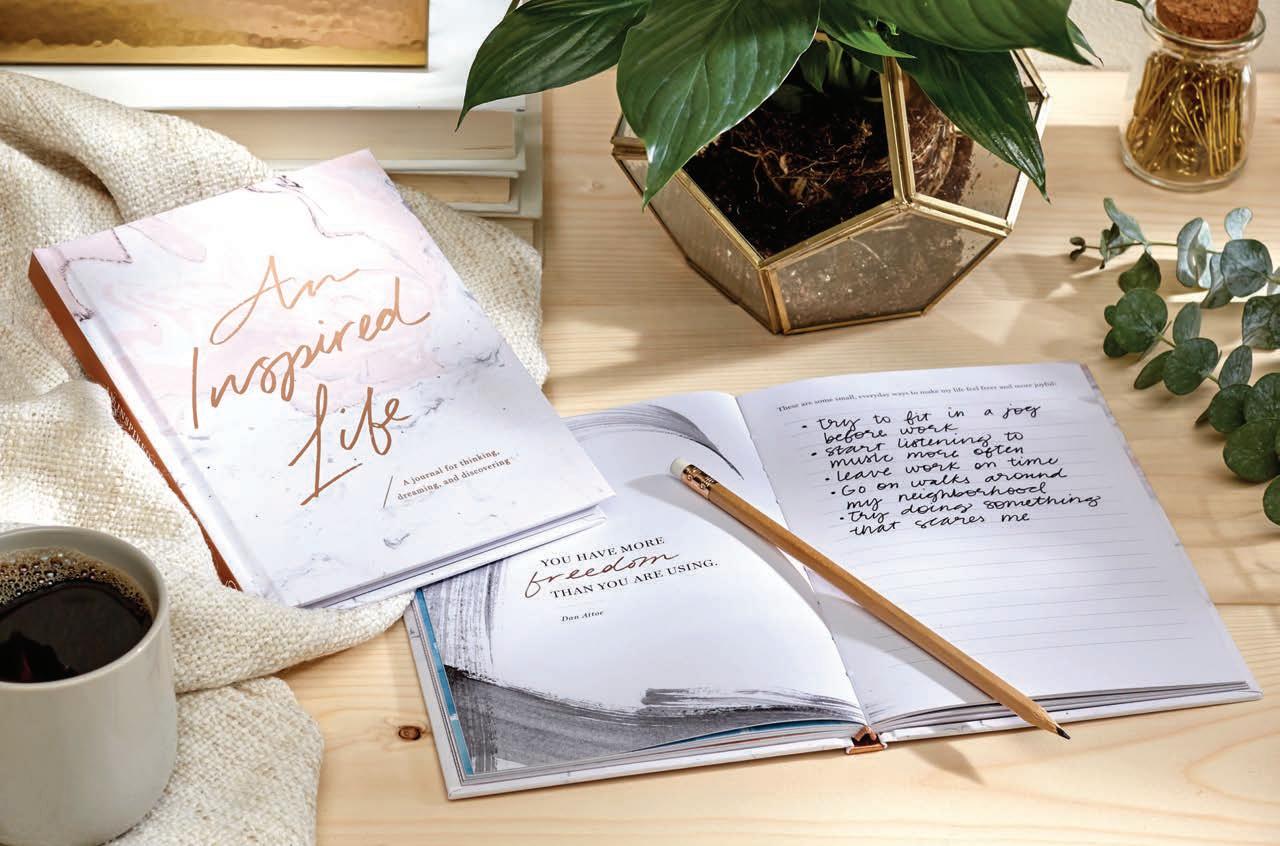 An
Inspired
Life
A journal for thinking,
dreaming, and discovering
YOU HAVE MORE
freedom
THAN YOU ARE USING.
Dan Attoe
These are some small, everyday ways to make my life feel freer and more joyful:
• try to fit in a jog
before work
• start listening to
music more often
• leave work on time
• Go on walks around
my neighborhood
• try doing something
that scares me